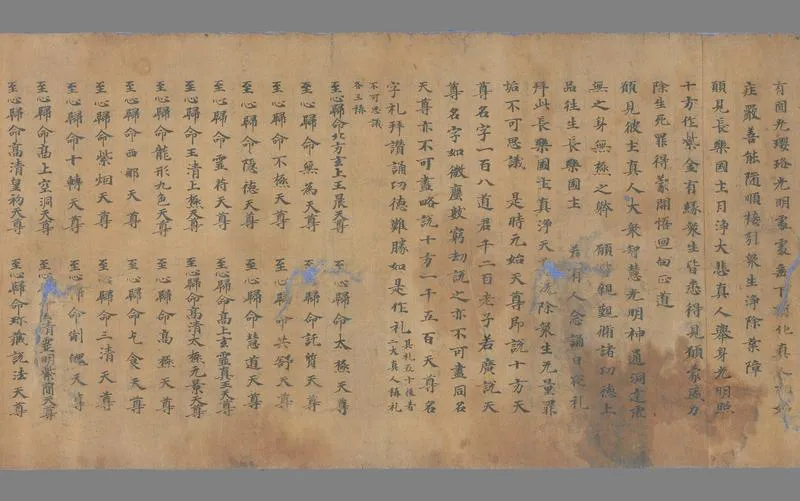 有圓光瓔珞光明蒙蒙垂下化真人
庄嚴善能随順椄引衆生淨除業障
願見長樂國土月淨大悲真人舉身光明照
十方作紫金有縁衆生皆悉得見頋蒙威力
除生死罪得蒙開悟迴向正道
頋見彼土真人大衆智慧光明神通洞達虛
無之身無極之體 願皆親觀備諸功德上
品往生長樂國土 若有人念誦日夜礼
拜此長樂國土真淨天 洗除衆生无量罪
垢不可思議 是時元始天尊即說十方天
尊名字一百八道君千二百老子若廣說天
尊名字如微塵數窮劫說之亦不可盡同名
天尊亦不可盡略說十方一千五百天尊名
字礼拜讚誦功德難勝如是作礼 其礼五十後者
二大真人稱礼
不可思議
各三稱
至心歸命北方玄上玉晨天尊 至心歸命太極天尊
至心歸命無為天尊 至心歸命託質天尊
至心歸命不極天尊 至心歸命共舒天尊
至心歸命隱德天尊 至心歸命慧道天尊
至心歸命靈符天尊 至心歸命高上玄靈真王天尊
至心歸命玉清上極天尊 至心歸命高清太極元景天尊
至心歸命龍形九色天尊 至心歸命高極天尊
至心歸命西那天尊 至心歸命乞食天尊
至心歸命紫烟天尊 至心歸命三清天尊
至心歸命十轉天尊 至心歸命制魄天尊
至心歸命高上空洞天尊 至心歸命清靈明紫簡天尊
至心歸命高清皇初天尊 至心歸命珎藏說法天尊